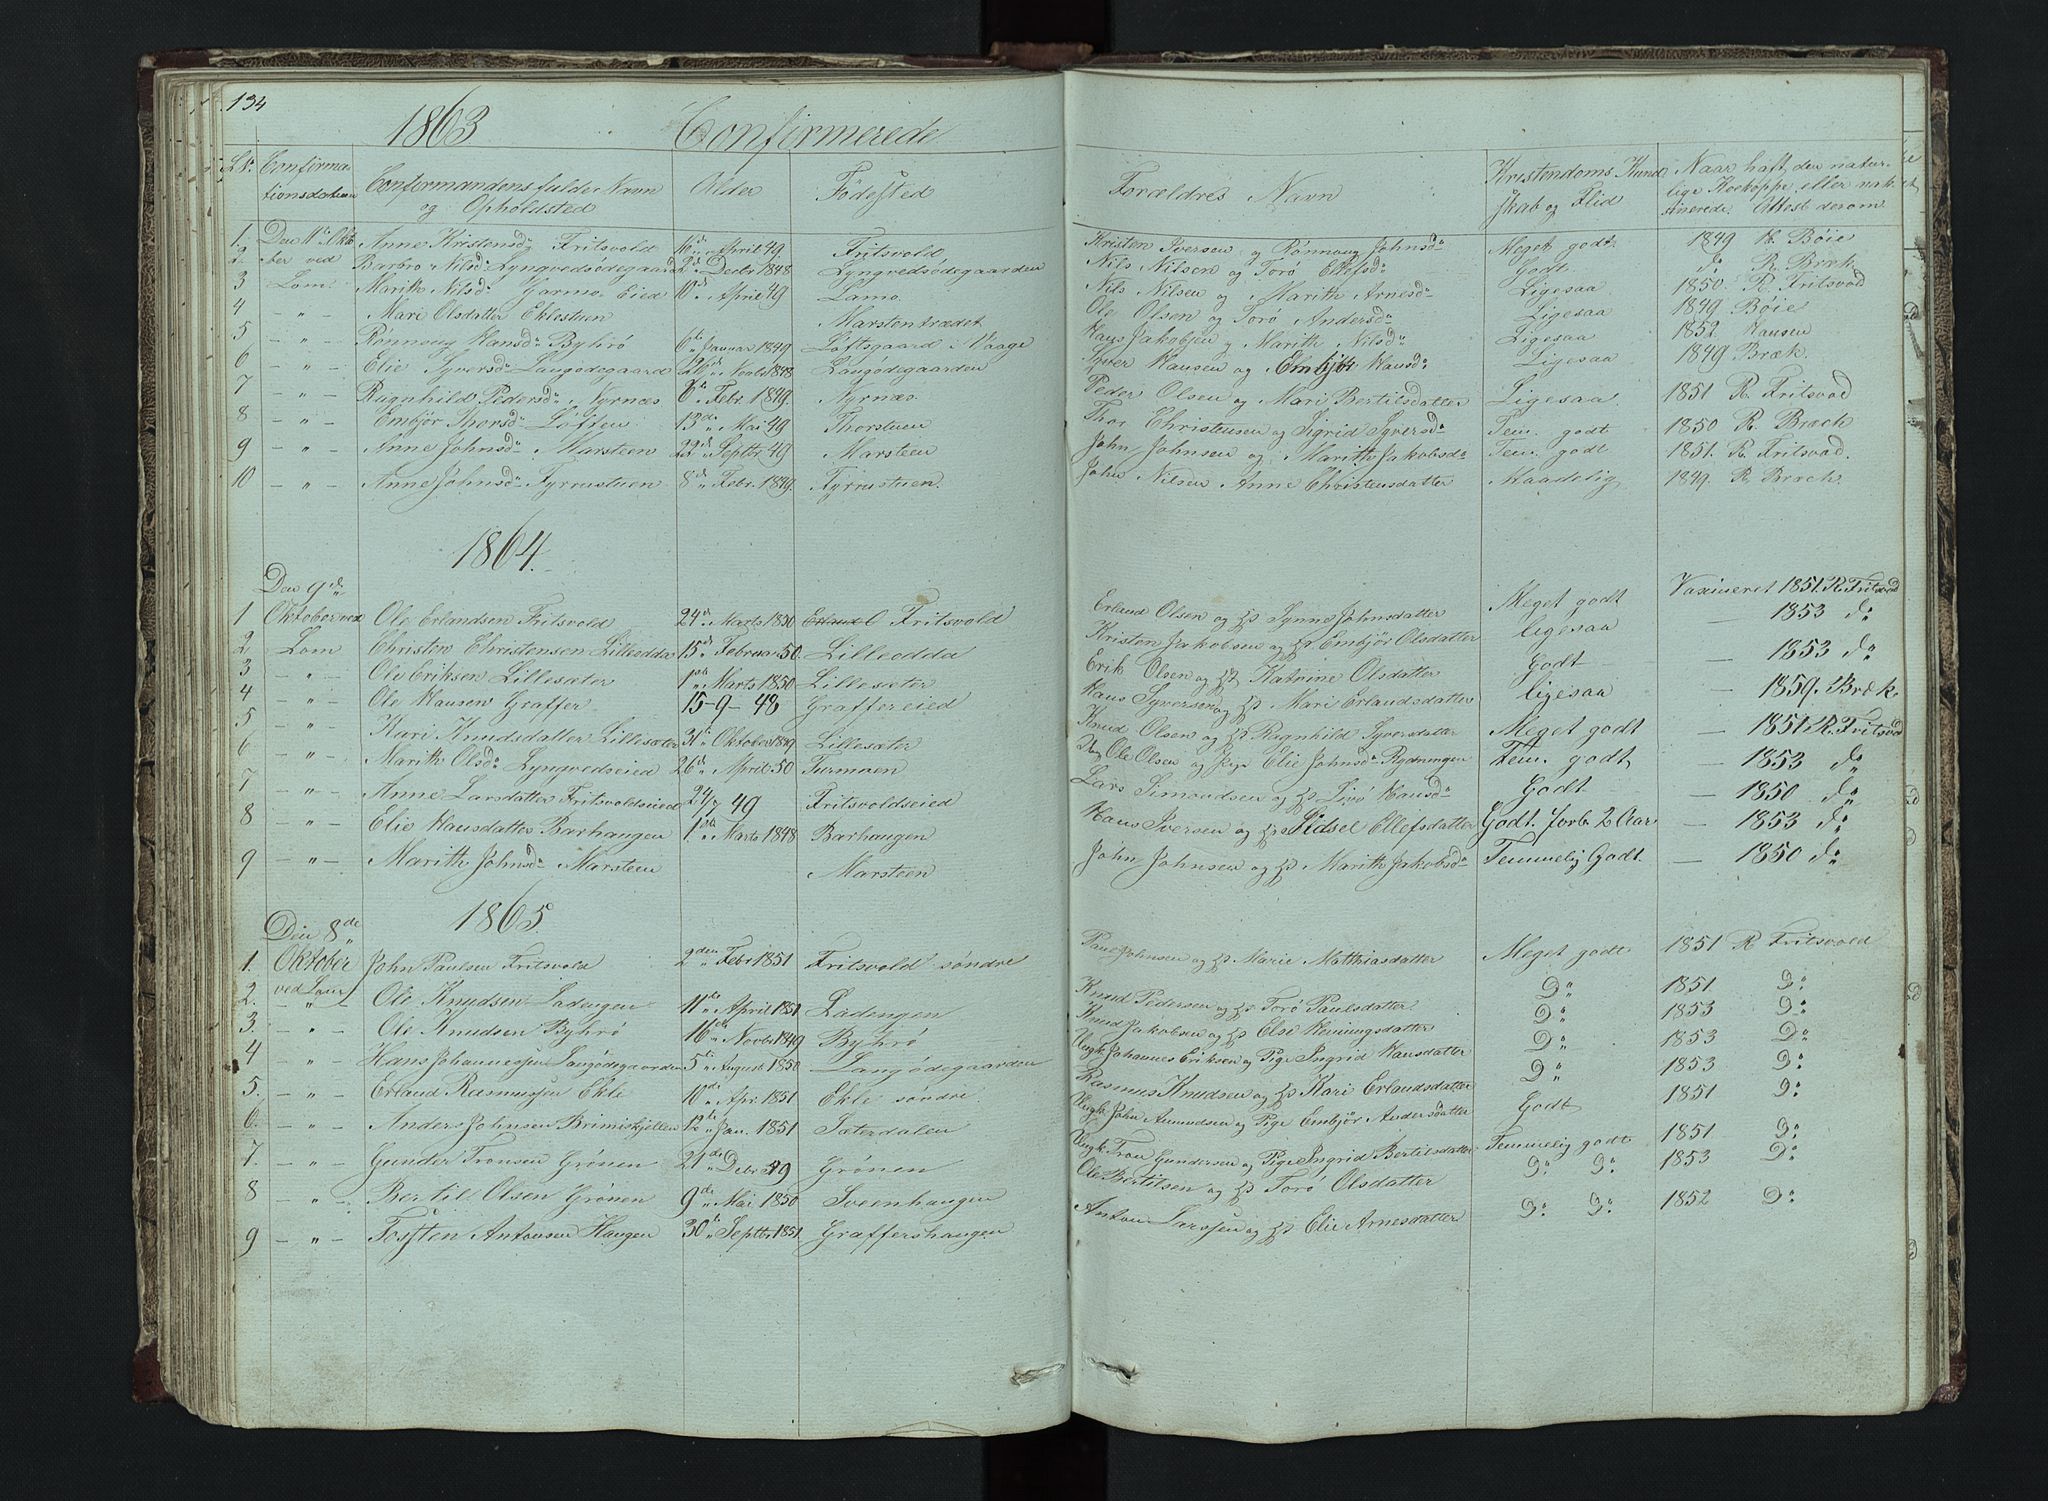 134
1863 Confirmerede
L. Nº Confirma- Confirmandens fulde Navn Alder Födested Forældres Navn Kristendoms Kund Naar haft den natur-
tionsdatum og Opholdsted skab og Flid lige Kockoppe, eller vak
sinerede. Attest derom
1. Den 11te Okto Anne Kristensdr Fritsvold 16de April 49 Fritsvold Kristen Iversen og Rönnoug Johnsdr Meget godt 1849 Böie
2. ber ved Barbro Nilsdr Lyngvedsödegaard 2de Decbr 1848 Lyngvedsödegaarden Nils Nilsen og Torö Ellefsdr Godt do R. Bræk
3 Lom Marith Nilsdr Garmo Eied 10de April 49 Nils Nilsen og Marith Arnesdr Ligesaa 1850 R. Fritsvod
4 – " – Mari Olsdatter Eklestuen Marstentrædet Ole Olsen og Torö Andersdr Ligesaa 1849 Böie
5 – " – Rönnoug Hansdr Byhrö 6te Januar 1849 Löftsgaard i Vaage Hans Jakobsen og Marith Nilsdr Ligesaa 1852 Hansen
6 – " – Elie Syversdr Langödegaard 26de Novbr 1848 Langödegaarden Syver Hansen og Embjör Hansdr Ligesaa 1849 Bræk.
7 – " – Ragnhild Pedersdr Nyrnæs 6te Febr. 1849. Nyrnæs Peder Olsen og Mari Bertilsdatter Ligesaa 1851 R. Fritsvod
8 – " – Embjör Thorsdr Löften 13de Mai 49 Thorstuen Thor Christensen og Sigrid Syversdr Tem. godt 1850 R. Bræck
9 – " – Anne Johnsdr Marsteen 22de Septbr 49 Marsteen John Johnsen og Marith Jakobsdr Tem. godt 1851. R. Fritsvod.
10 – " – Anne Johnsdr Tyrrustuen 8de Febr. 1849. Tyrrustuen. John Nilsen Anne Christensdatter Maadelig 1849. R. Bræck.
1864.
Den 9de
1 Oktober ved Ole Erlandsen Fritsvold 24de Marts 1850 Fritsvold Erland Olsen og Synne Johnsdatter Meget godt Vaxineret 1851. R. Fritsvod
2 Lom Christen Christensen Lilleodda 15de Februar 50. Lilleodda Kristen Jakobsen og Embjör Olsdatter ligesaa – 1853 do
3 – " – Ole Eriksen Lillesæter 1ste Marts 1850 Lillesæter Erik Olsen og Katrine Olsdatter Godt – 1853 do
4 – " – Ole Hansen Graffer 15–9–48 Graffereied Hans Syversen og Mari Erlandsdatter ligesaa – 1859. Bræk.
5 – " – Kari Knudsdatter Lillesæter 31te Oktober 1849 Lillesæter Knud Olsen og Ragnhild Syversdatter Meget godt – 1851 R. Fritsvod
6 – " – Marith Olsdr Lyngvedseied 26de April 50 Turmoen Ole Olsen og Pige Elie Johnsdr Rydningen Tem. godt – 1853 do
7 – " – Anne Larsdatter Fritsvoldseied 24/7 49 Fritsvoldseied Lars Simondsen og Livö Hansdr Godt – 1850 do
8 – " – Elie Hansdatter Barhaugen 1ste Marts 1848 Barhaugen Hans Iversen og Sidsel Ellefsdatter Godt. forb. 2 Aar – 1853 do
9 – " – Marith Johnsdr Marsteen Marsteen John Johnsen og Marith Jakobsdr Temmelig Godt. – 1850 do
1865
Den 8de
1. Oktober John Paulsen Fritsvold 2den Febr 1851 Fritsvold söndre Johnsen og Marie Matthiasdatter Meget godt 1851 R Fritsvold
2. ved Lom Ole Knudsen Ladengen 11te April 1851 Ladengen Knud Pedersen og Torö Paulsdatter Do 1851 Do
3. – " – Ole Knudsen Byhrö 16de Novbr 1849 Byhrö Knud Jakobsen og Else Hevningsdatter Do 1853 Do
4 – " – Hans Johannessen Langödegaarden 5te August 1850 Langödegaarden Ungk. Johannes Eriksen og Pige Ingrid Hansdatter Do 1853 Do
5. – " – Erland Rasmussen Ekle 10de Apr 1851 Ekle söndre Rasmus Knudsen og Kari Erlandsdatter Do 1853 Do
6. – " – Anders Johnsen Brimiskjellen 12te Jan. 1851 Sæterdalen Ungk. John Amundsen og Pige Embjör Andersdatter Godt 1851 Do
7. – " – Gunder Tronsen Grönen 21de Debr 49 Grönen Ungk. Tron Gundersen og Pige Ingrid Bertilsdatter Temmelig godt 1851 Do
8 – " – Bertil Olsen Grönen 9de Mai 1850 Sveenhaugen Ole Bertilsen og Torö Olsdatter Do Do 1853 Do
9 – " – Tosten Antonsen Haugen 30te Septbr 1851 Graffershaugen Anton Larssen og Elie Arnesdatter Do Do 1852 Do